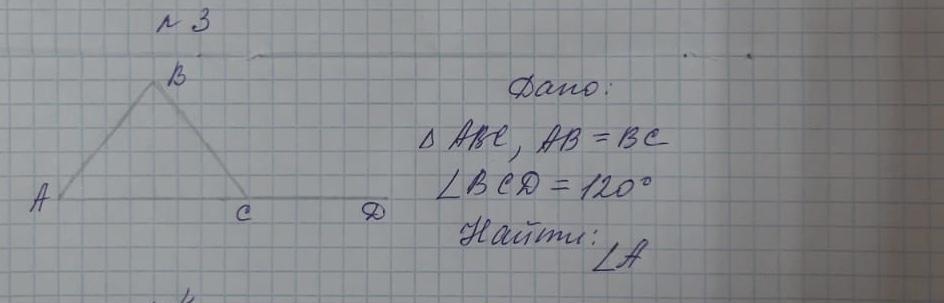 № 3
B
A
C
D
Дано:
△ ABC, AB = BC
∠BCD = 120°
Найти:
∠A